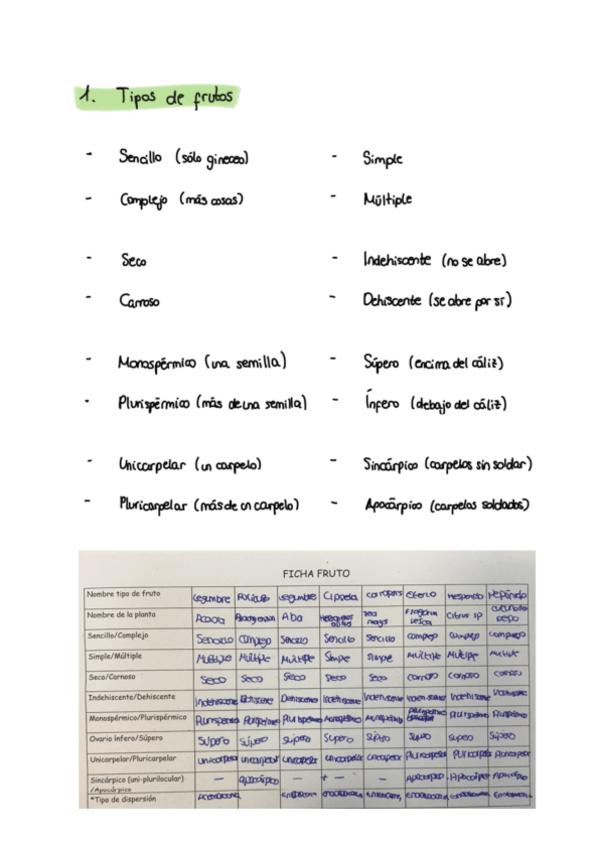 1. Tipos de frutos
- Sencillo (sólo gineceo) - Simple
- Complejo (más cosas) - Múltiple
- Seco - Indehiscente (no se abre)
- Carnoso - Dehiscente (se abre por sí)
- Monospérmico (una semilla) - Súpero (encima del cáliz)
- Plurispérmico (más de una semilla) - Ínfero (debajo del cáliz)
- Unicarpelar (un carpelo) - Sincárpico (carpelos sin soldar)
- Pluricarpelar (más de un carpelo) - Apocárpico (carpelos soldados)
FICHA FRUTO
Nombre tipo de fruto Legumbre Folículo Legumbre Cippela Eterio Hesperidio Pepónido
Nombre de la planta Aba Zea mays Fragaria vesca Citrus sp
Sencillo/Complejo Sencillo complejo Sencillo Sencillo Sencillo complejo complejo complejo
Simple/Múltiple Múltiple Múltiple Múltiple Simple Simple Múltiple Múltiple Múltiple
Seco/Carnoso Seco Seco Seco Seco Seco carnoso carnoso carnoso
Indehiscente/Dehiscente Indehiscente Dehiscente Dehiscente Indehiscente Indehiscente Indehiscente Indehiscente
Monospérmico/Plurispérmico
Ovario ínfero/Súpero Súpero Súpero Súpero Súpero Súpero Súpero Súpero Súpero
Unicarpelar/Pluricarpelar unicarpelar unicarpelar unicarpelar unicarpelar unicarpelar Pluricarpelar Pluricarpelar Pluricarpelar
Sincárpico (uni-plurilocular) /Apocárpico — apocárpico — + — — Apocárpico Apocárpico Apocárpico
*Tipo de dispersión